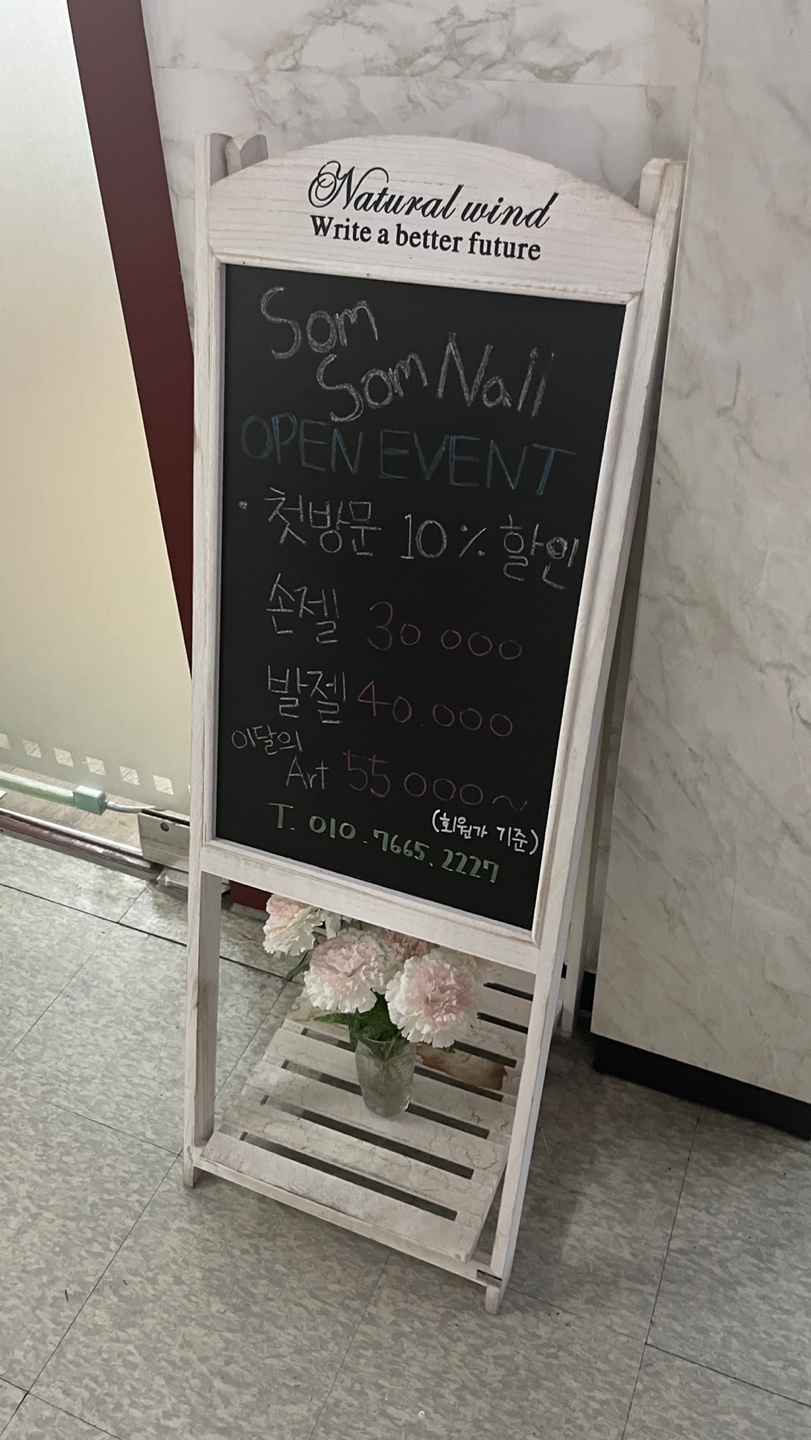 Natural wind
Write a better future
Som
Som Nail
OPEN EVENT
· 첫방문 10% 할인
손젤 30.000
발젤 40.000
이달의
Art 55000~
(회원가 기준)
T. 010.7665.2227